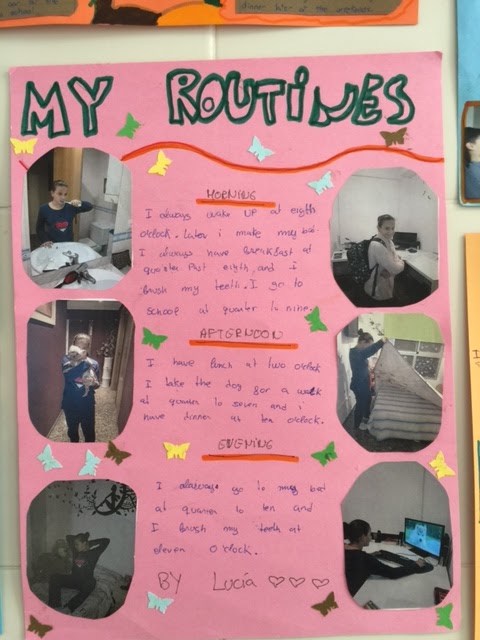 MY ROUTINES
MORNING
I always wake up at eigth
o'clock. Later i make my bed.
I always have breakfast at
quarter past eigth, and i
brush my teeth. I go to
school at quarter to nine.
AFTERNOON
I have lunch at two o'clock
I take the dog for a walk
at quarter to seven and i
have dinner at ten o'clock.
EVENING
I always go to my bed
at quarter to ten and
I brush my teeth at
eleven o'clock.
BY Lucía